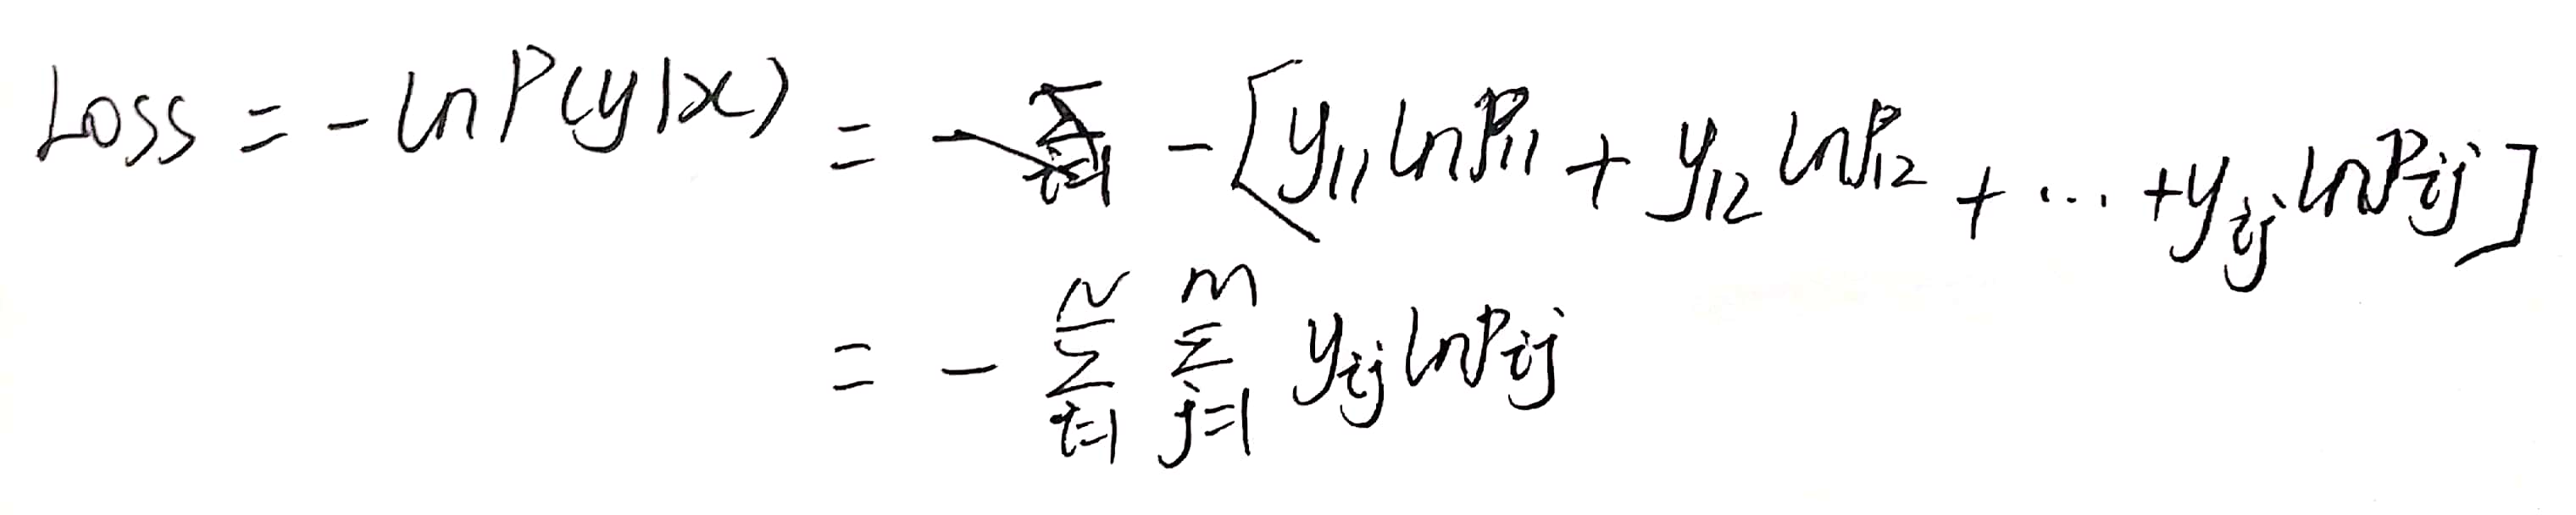 Loss = -lnP(y|x) = -[y₁₁lnP₁₁ + y₁₂lnP₁₂ + ... + yᵢⱼlnPᵢⱼ]
= - \sum_{i=1}^{N} \sum_{j=1}^{M} yᵢⱼlnPᵢⱼ